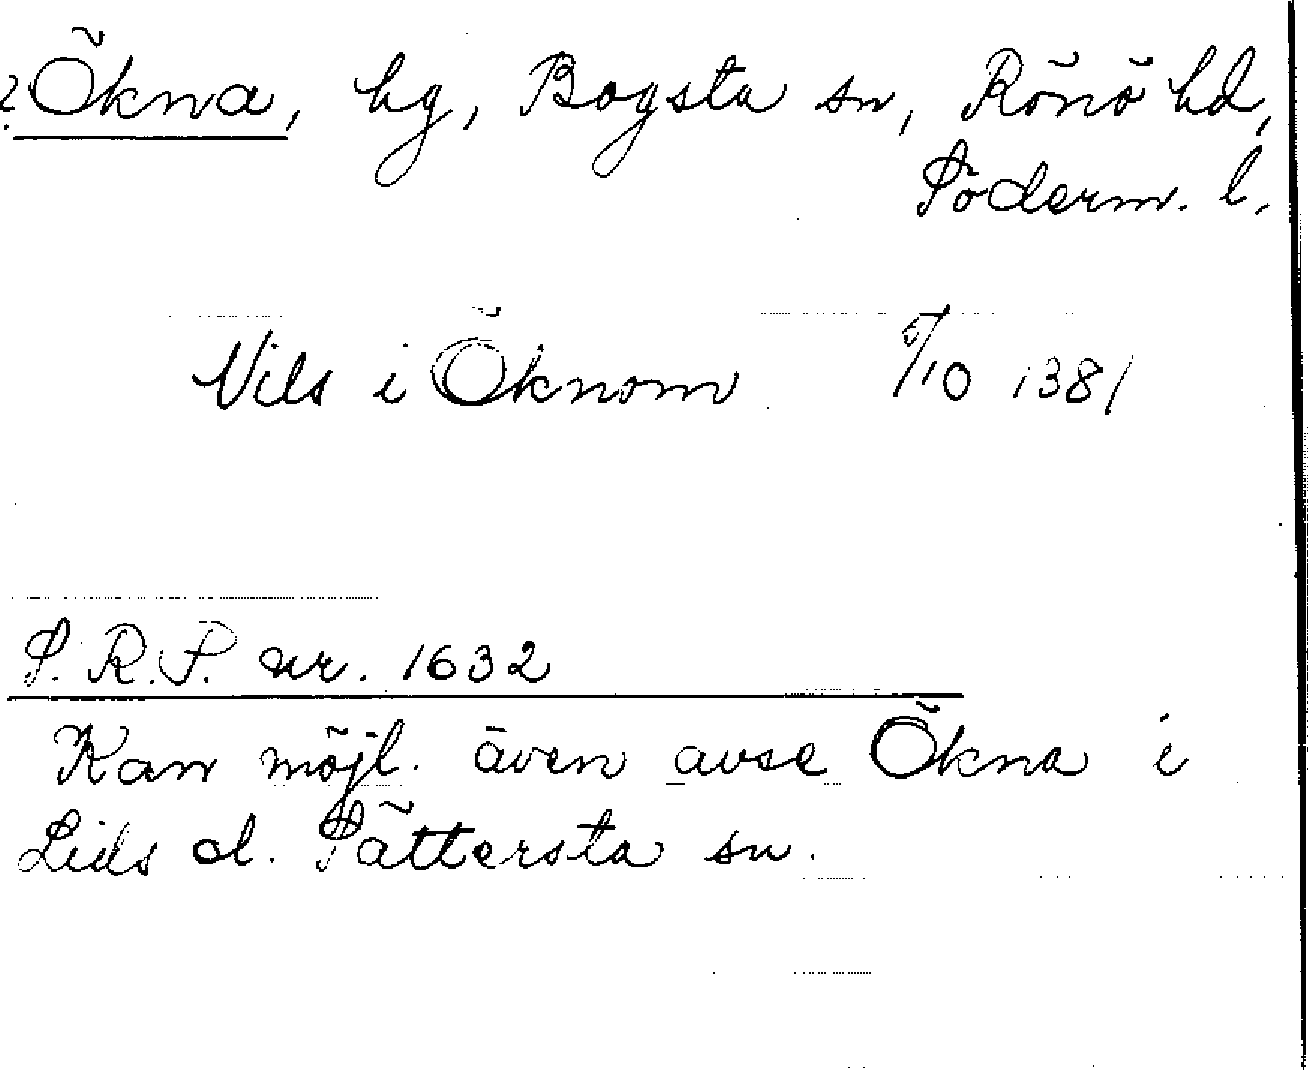 ? Ökna, hg, Bogsta sn, Rönö hd,
Söderm. l.
Nils i Öknom 5/10 1381
S.R.P. nr. 1632
Kan möjl. även avse Ökna i
Lids el. Sättersta sn.